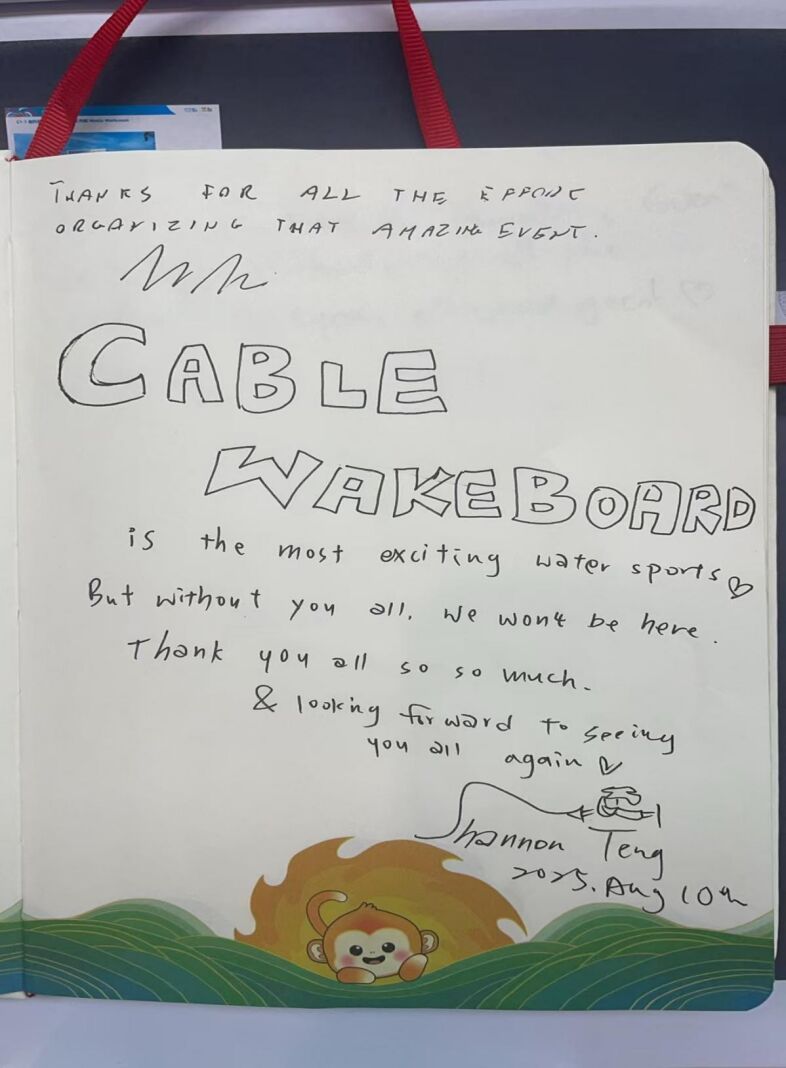 THANKS FOR ALL THE EFFORT
ORGANIZING THAT AMAZING EVENT.
CABLE
WAKEBOARD
is the most exciting water sports♡
But without you all, we won't be here.
Thank you all so so much.
& looking forward to seeing
you all again ♡
Shannon Teng
2025. Aug 10th